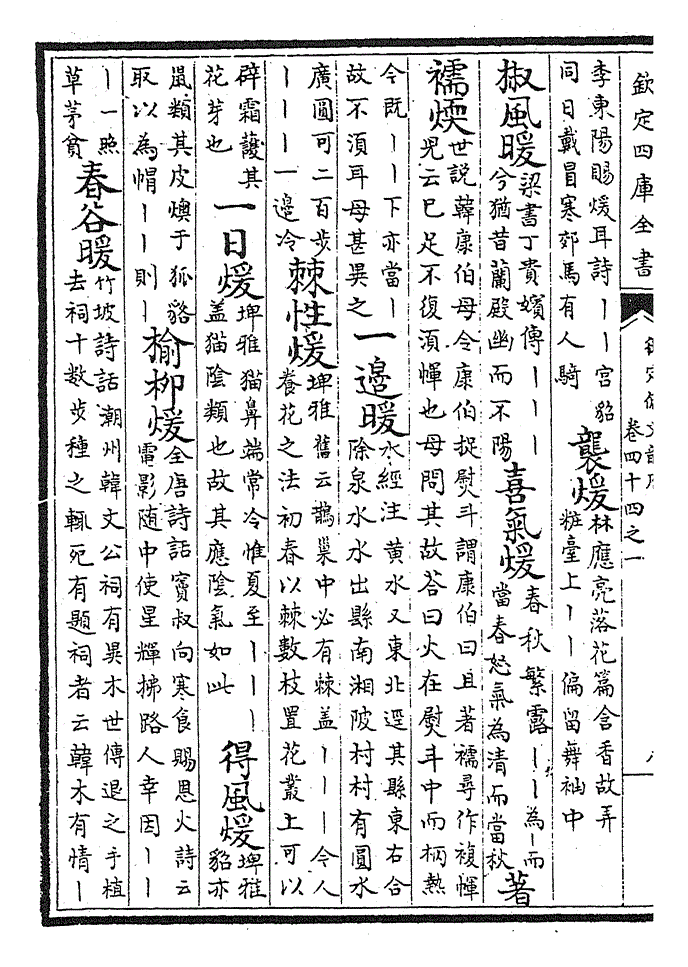 欽定四庫全書
卷四十四之一
李東陽賜煖耳詩丨丨宮貂
同日戴冒寒郊馬有人騎
襲煖
林應亮落花篇含香故弄
粧臺上丨丨偏留舞袖中
椒風暖
梁書丁貴嬪傳丨丨丨
兮猶昔蘭殿幽而不陽
喜氣煖
春秋繁露丨丨為丨而
當春怒氣為清而當秋
著
襦煗
世説韓康伯母令康伯捉熨斗謂康伯曰且著襦尋作複㡓
兒云已足不復湏㡓也母問其故答曰火在熨斗中而柄熱
今既丨丨下亦當丨
故不湏耳母甚異之
一邉暖
水經注黄水又東北逕其縣東右合
除泉水水出縣南湘陂村村有圓水
廣圓可二百步
丨丨丨一邊冷
棘性煖
埤雅舊云鵲巢中必有棘盖丨丨丨令人
養花之法初春以棘數枝置花叢上可以
辟霜護其
花芽也
一日煖
埤雅猫鼻端常冷惟夏至丨丨丨
盖猫陰類也故其應陰氣如此
得風煖
埤雅
貂亦
鼠類其皮燠于狐貉
取以為帽丨丨則丨
榆柳煖
全唐詩話竇叔向寒食賜恩火詩云
電影随中使星輝拂路人幸因丨丨
丨一照
草茅貧
春谷暖
竹坡詩話潮州韓文公祠有異木世傳退之手植
去祠十數步種之輒死有題祠者云韓木有情丨